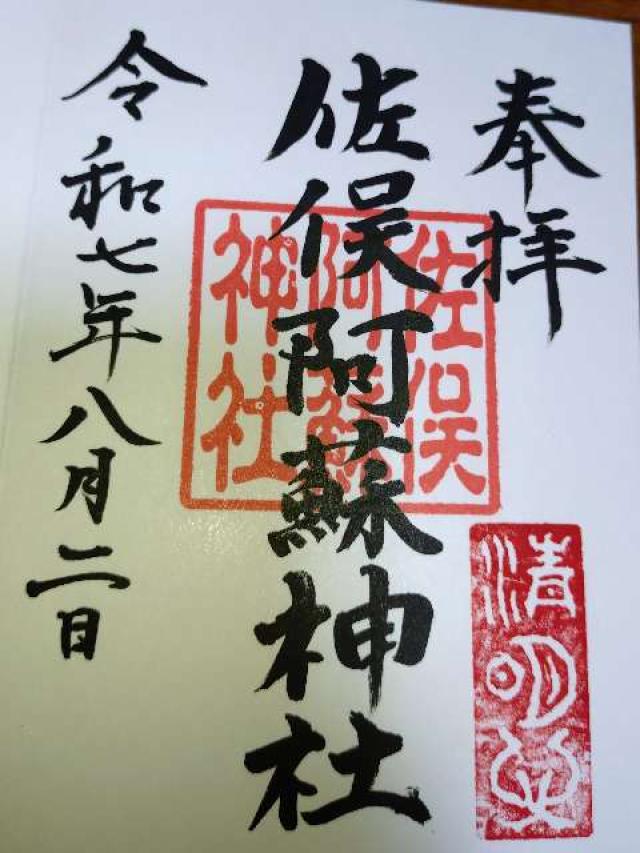 奉拝
佐俣阿蘇神社
佐俣
阿蘇
神社
清明心
令和七年八月二日